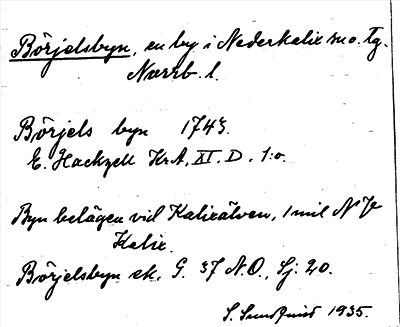 Börjelsbyn, en by i Nederkalix sn o. tg.
Norrb. l.
Börjels byn 1743.
E. Hackzell KrA, XI. D. 1:o.
Byn belägen vid Kalixälven, 1 mil N
Kalix.
Börjelsbyn ek. G. 37 N.O., Sj: 20.
S. Sundquist 1935.